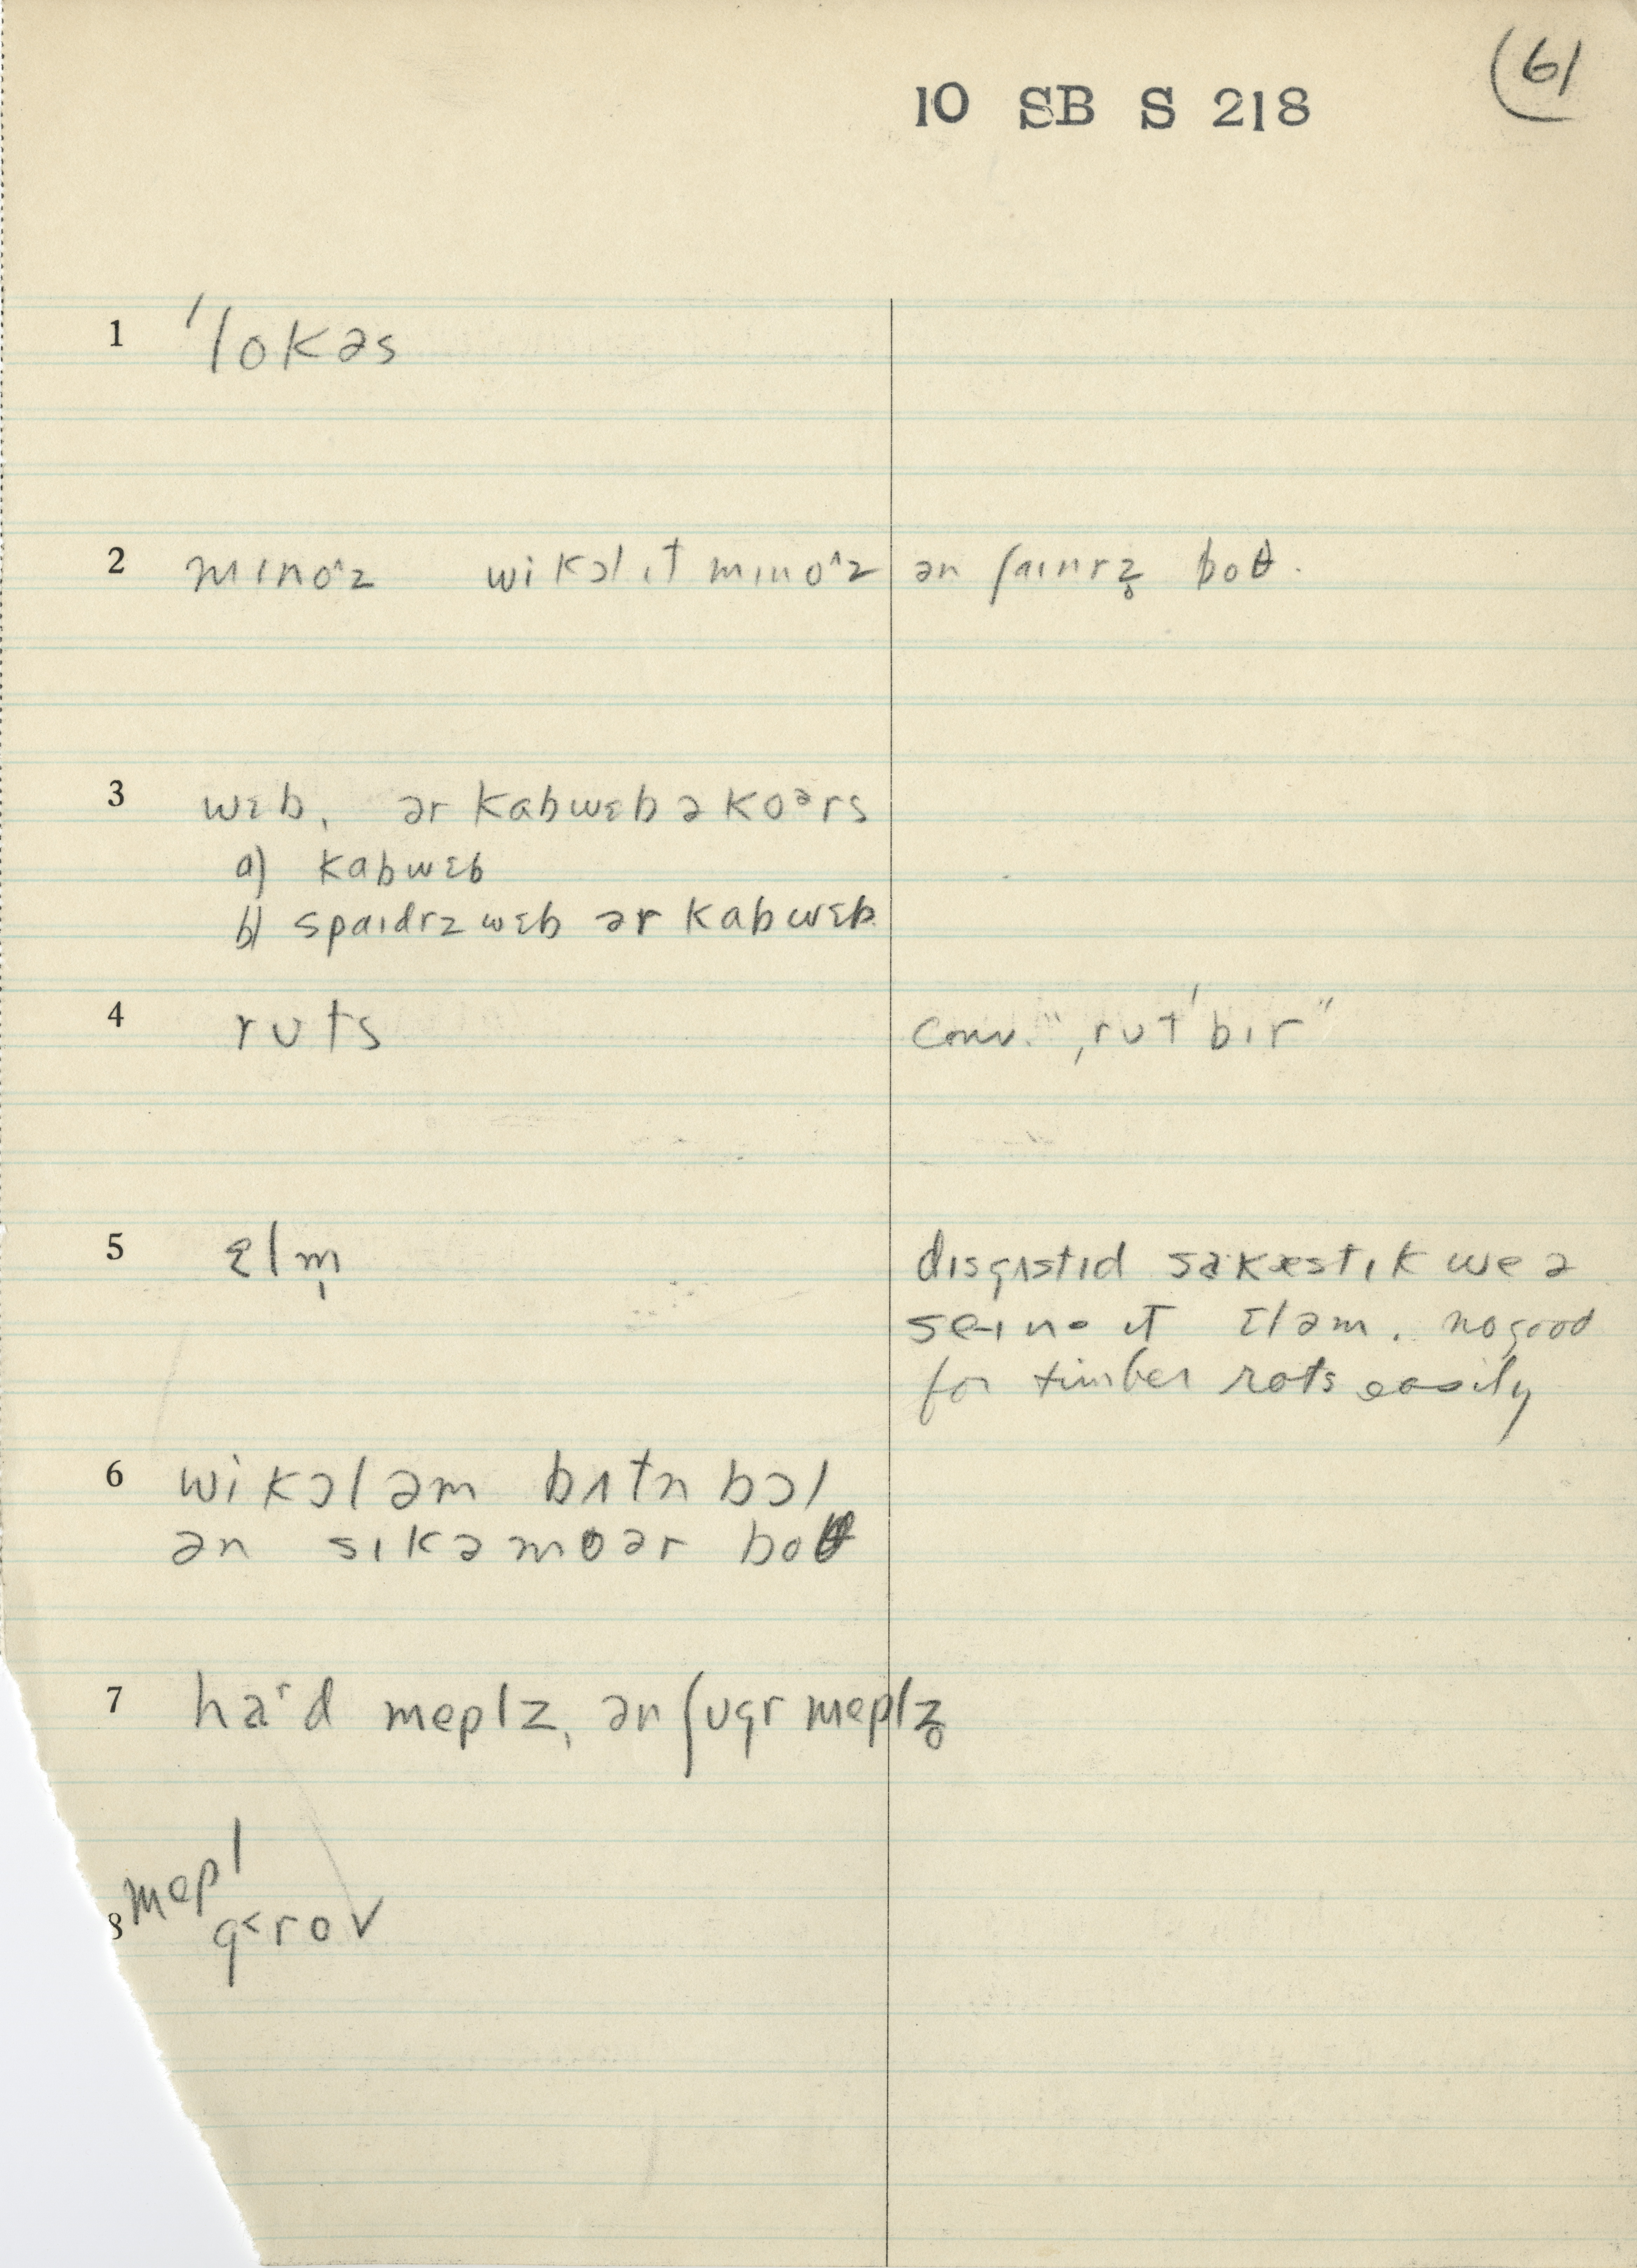 (61
10 SB S 218
1 ˈlokəs
2 mɪnoᶺz wi kɔl ɪt mɪnoᶺz ən ʃaɪnrz̥ boθ.
3 wɛb, ər kabwɛb ə koᵊrs
a) kabwɛb
b) spaɪdrz wɛb ər kabwɛb
4 ruts conv. "ˌrutˈbɪr"
5 ɛlm̩ dɪsgʌstɪd
ɪt ɛləm. no good
for timber rots easily
6 wi kɔl əm bʌtn bɔl
ən sɪkəmoər boθ
7 haʳd meplz, ən ʃugr meplz̥
8 mepl
g˂rov